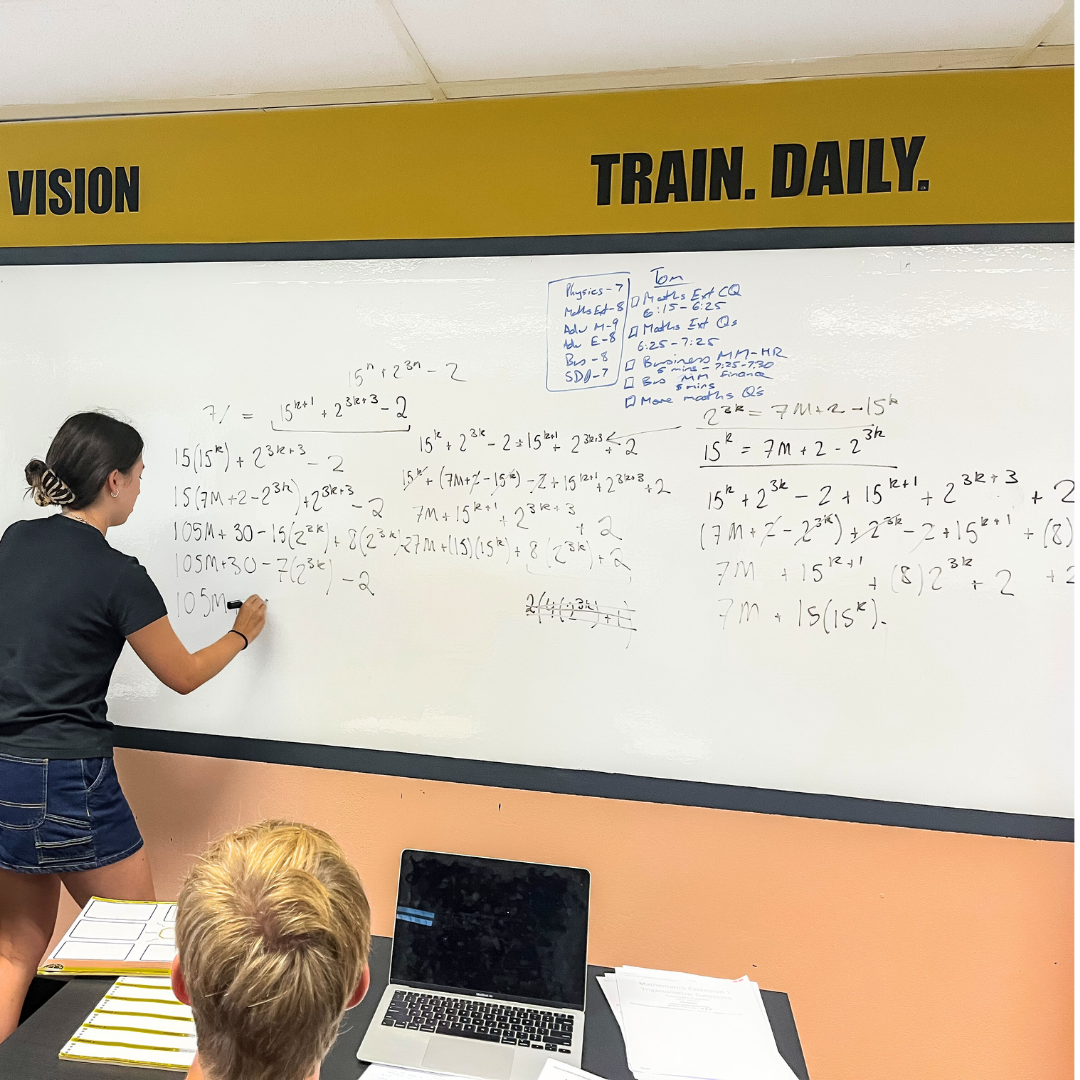 VISION
TRAIN. DAILY.
Physics - 7
Maths Ext - 8
Adv M - 9
Adv E - 8
Bus - 8
SDD - 7
Tom
□ Maths Ext CQ
6:15 - 6:25
□ Maths Ext Qs
6:25 - 7:25
□ Business MM-HR
5 mins - 7:25-7:30
□ Bus MM Finance
5 mins
□ More maths Q's
15^n + 2^{3n} - 2
7/ = 15^{k+1} + 2^{3k+3} - 2
15(15^k) + 2^{3k+3} - 2
15(7M+2-2^{3k}) + 2^{3k+3} - 2
105M + 30 - 15(2^{3k}) + 8(2^{3k}) - 2
105M + 30 - 7(2^{3k}) - 2
105M
15^k + 2^{3k} - 2 + 15^{k+1} + 2^{3k+3} + 2
15^k + (7M+2-15^k) - 2 + 15^{k+1} + 2^{3k+3} + 2
7M + 15^{k+1} + 2^{3k+3} + 2
7M + (15)(15^k) + 8(2^{3k}) + 2
2(4(2^{3k}) + 1)
2^{3k} = 7M + 2 - 15^k
15^k = 7M + 2 - 2^{3k}
15^k + 2^{3k} - 2 + 15^{k+1} + 2^{3k+3} + 2
(7M + 2 - 2^{3k}) + 2^{3k} - 2 + 15^{k+1} + (8)
7M + 15^{k+1} + (8)2^{3k} + 2 + 2
7M + 15(15^k).